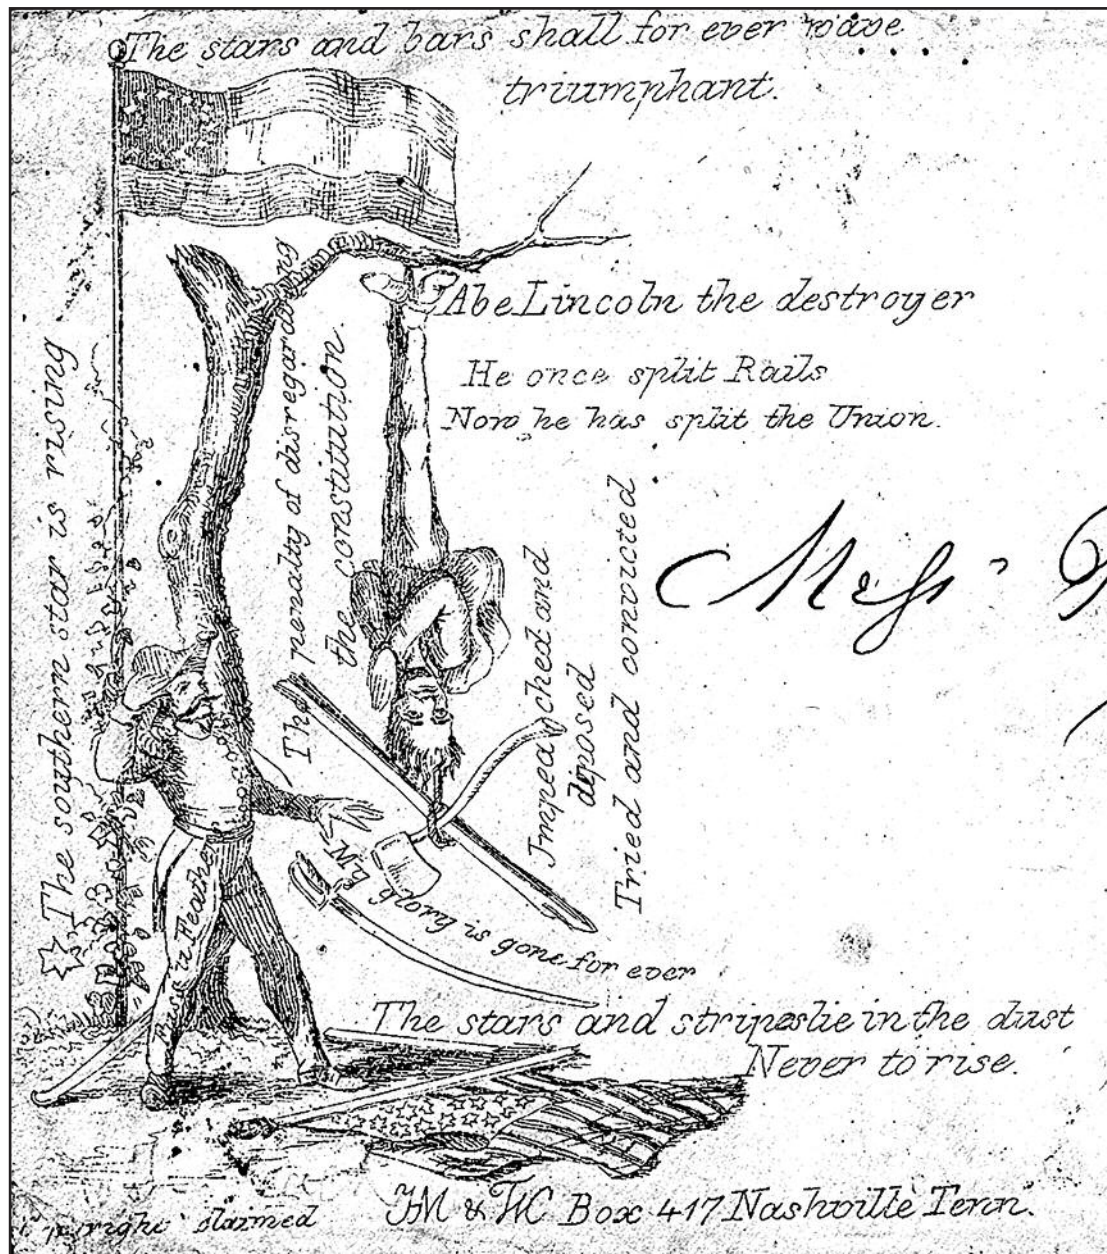 The stars and bars shall for ever wave
triumphant.
Abe Lincoln the destroyer
He once split Rails
Now he has split the Union.
The southern star is rising
The penalty of disregarding
the constitution.
Impeached and
deposed
Tried and convicted
Mess
My
glory is gone for ever
The stars and stripes lie in the dust
Never to rise.
claimed
Box 417 Nashville Tenn.